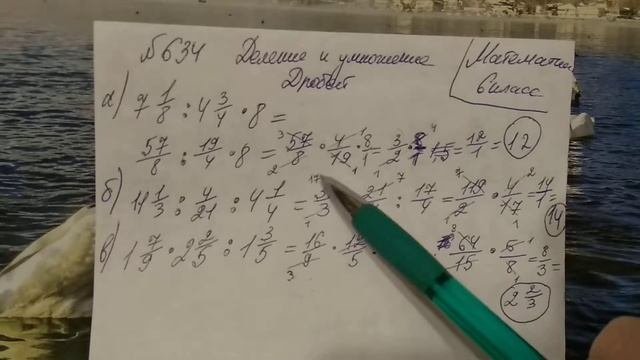 №634 Деление и умножение Дробей
Математика 6 класс
а) 7 1/8 : 4 3/4 · 8 =
57/8 : 19/4 · 8 = 57/8 · 4/19 · 8/1 = 3/2 · 8/1 = 12/1 = 12
б) 4 1/3 : 4/21 : 4 1/4 = 21 : 17/4 = 119/2 · 4/17 = 14/1 = 14
в) 1 7/9 · 2 2/5 : 1 3/5 = 16/9 · 12/5 64/15 · 5/8 = 8/3 =
2 2/3